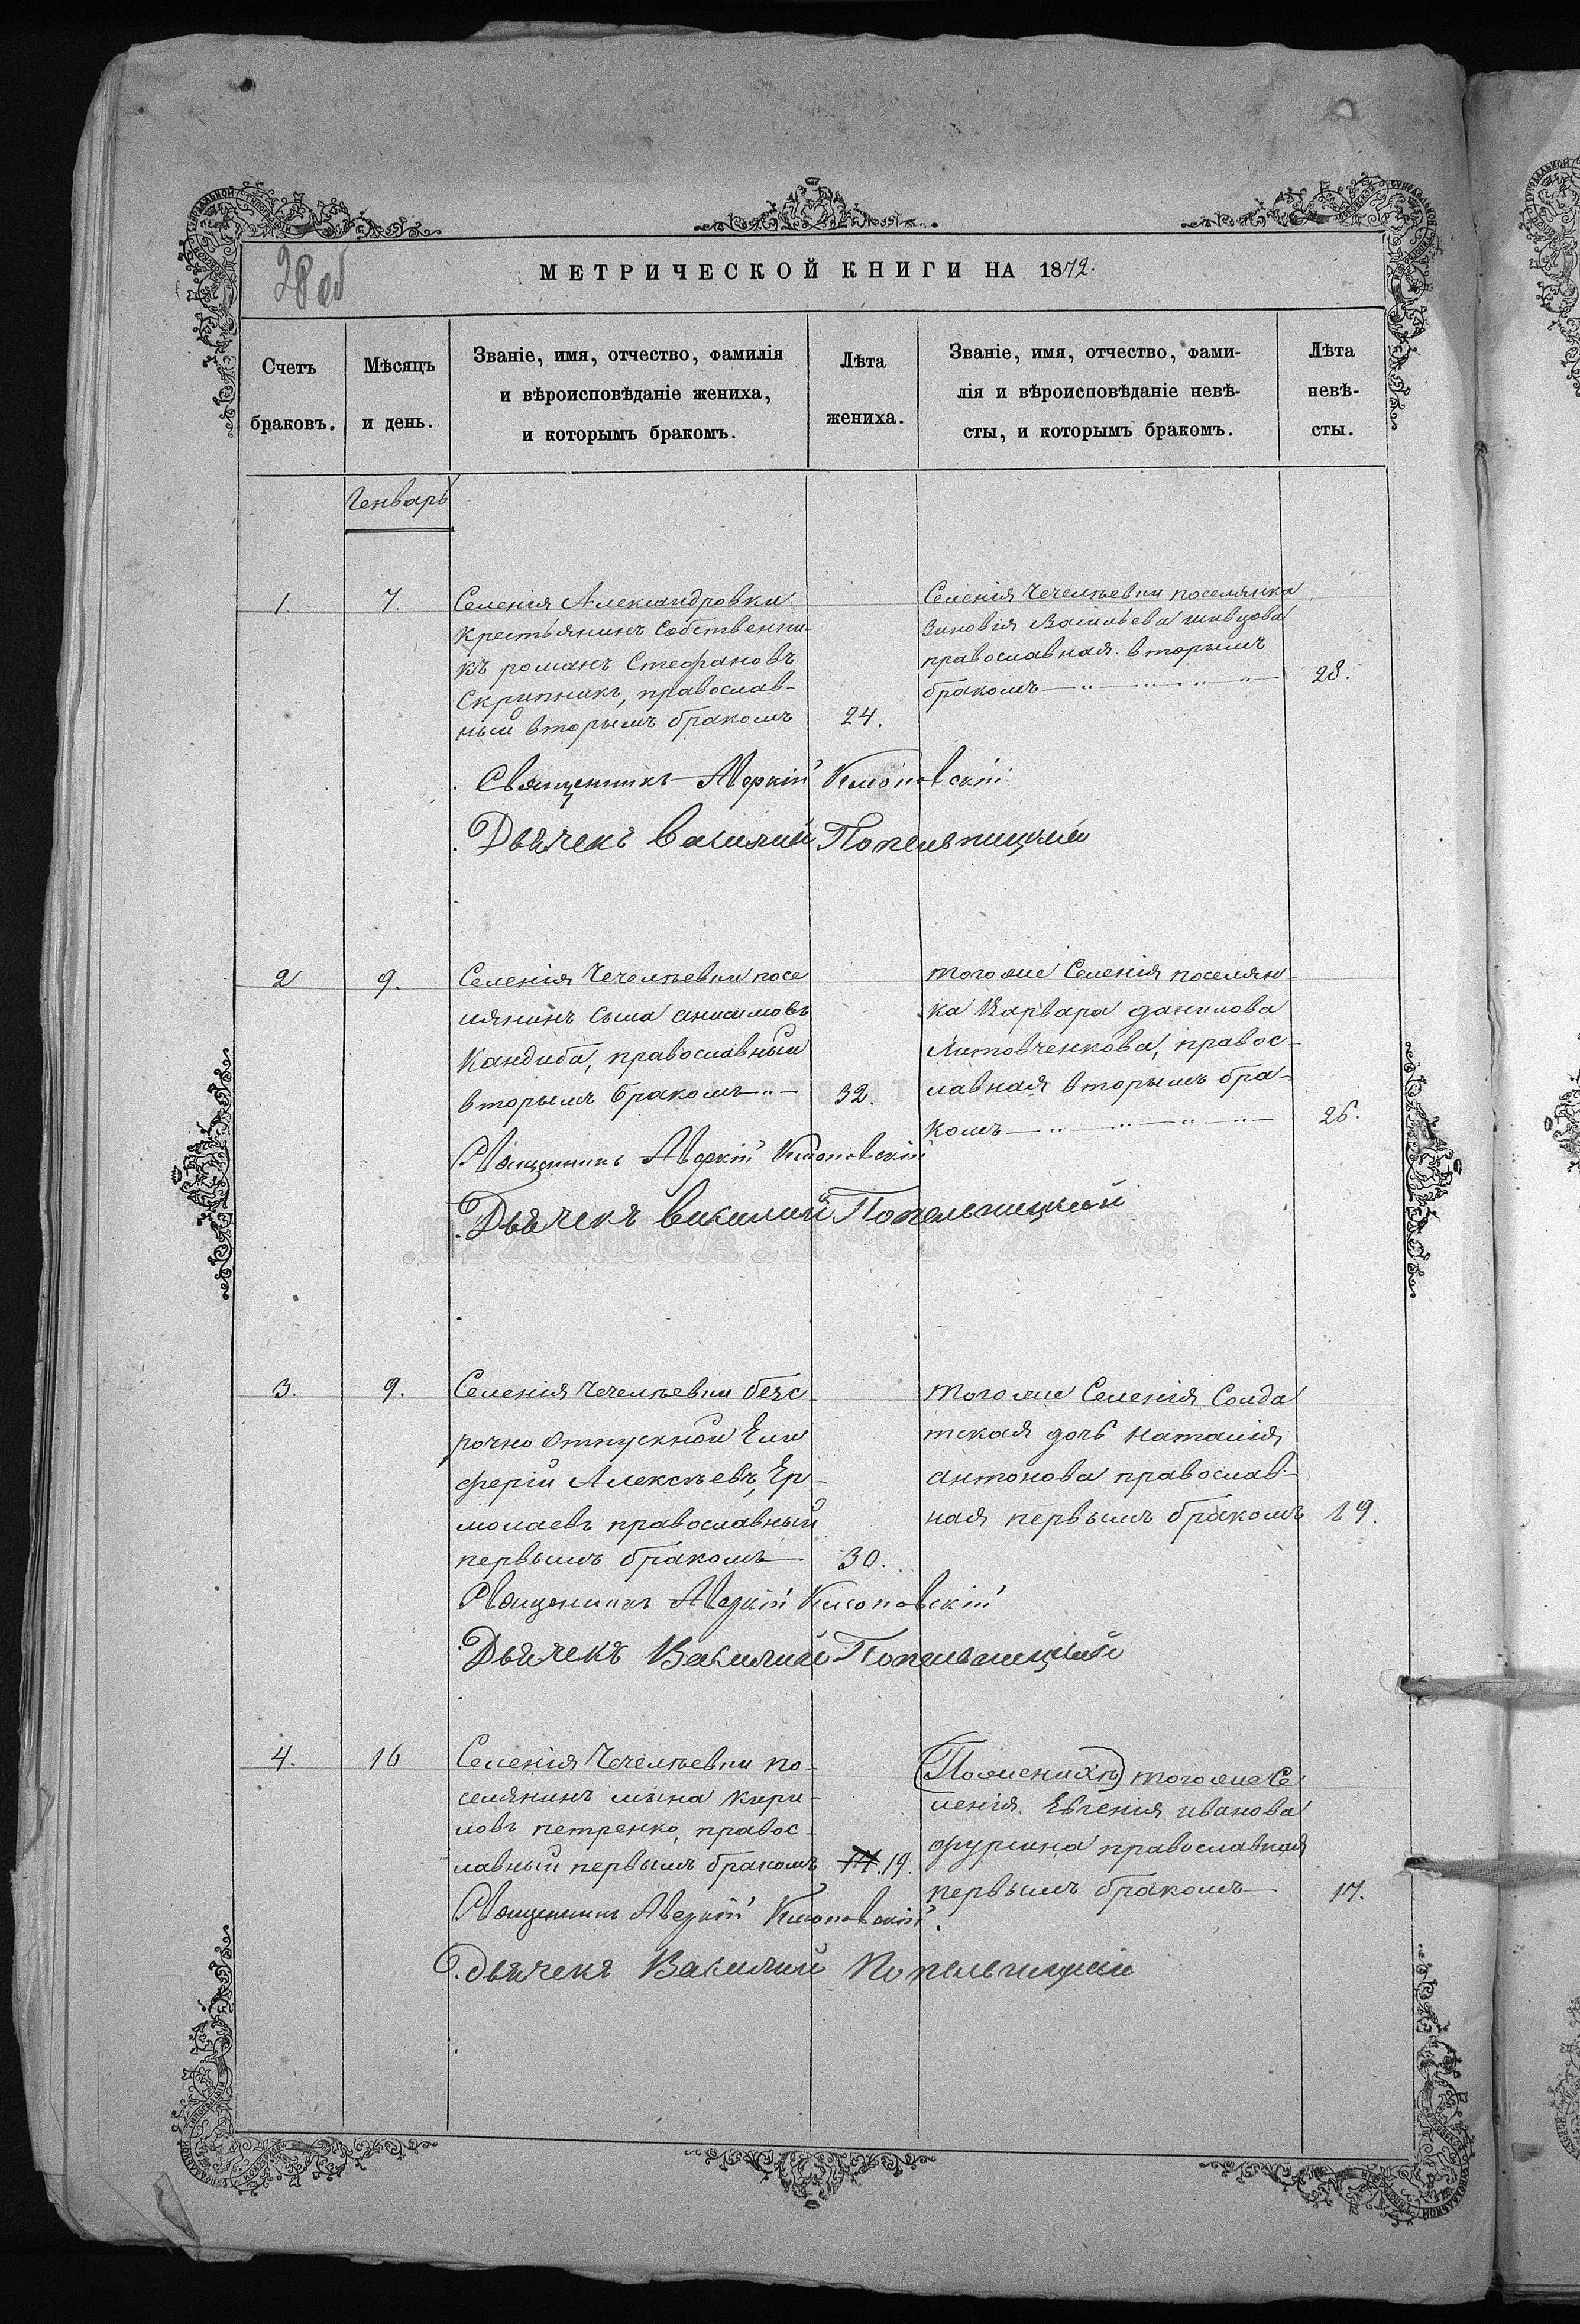 28 об
МЕТРИЧЕСКОЙ КНИГИ НА 1872.
Счетъ браковъ.
Мѣсяцъ и день.
Званіе, имя, отчество, фамилія
и вѣроисповѣданіе жениха,
и которымъ бракомъ.
Лѣта
жениха.
Званіе, имя, отчество, фами-
лія и вѣроисповѣданіе невѣ-
сты, и которымъ бракомъ.
Лѣта
невѣ-
сты.
Генварь
1
7.
Селенія Александровки
крестьянинъ собственни-
къ романъ Стефановъ
Скрипникъ, православ-
ный вторымъ бракомъ
24.
Селенія Чечелѣевки поселянка
Зиновія Васильева шевцова
православная вторымъ
бракомъ
28.
Священникъ Аверкій Клоповскій
Дьячекъ василий Попельницкий
2
9.
Селенія Чечелѣевки посе
лянинъ сыла анисимовъ
Кандиба, православный
вторымъ бракомъ
32.
того же Селенія поселян-
ка Варвара данилова
Литовченкова, правос-
лавная вторымъ бра-
комъ
26.
Священникъ Аверкій Клоповскій
Дьячекъ василий Попельницкий
3.
9.
Селенія Чечелѣевки безс
рочно отпускной Елев
ферій Алексѣевъ, Ер-
молаевъ православный
первымъ бракомъ
30.
того же Селенія Солда
тская дочь наталія
антонова православ-
ная первымъ бракомъ
19.
Священникъ Аверкій Клоповскій
Дьячекъ Василий Попельницкий
4.
16
Селенія Чечелѣевки по-
селянинъ мина кири-
ловъ петренко, правос-
лавный первымъ бракомъ
19.
того же Се
ленія Евгенія иванова
фурсина православная
первымъ бракомъ
17.
Священникъ Аверкій Клоповскій
Дьячекъ Василий Попельницкий